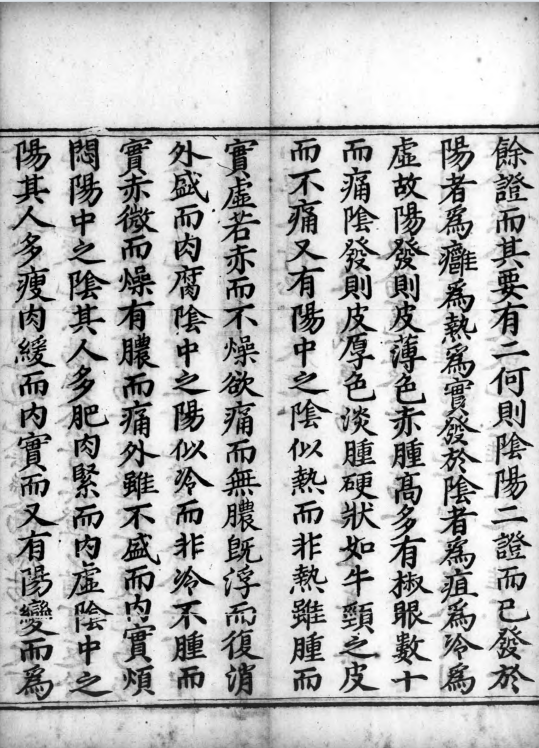 餘證而其要有二何則陰陽二證而已發於
陽者為癰為熱為實發於陰者為疽為冷為
虛故陽發則皮薄色赤腫高多有椒眼數十
而痛陰發則皮厚色淡腫硬狀如牛頸之皮
而不痛又有陽中之陰似熱而非熱雖腫而
實虛若赤而不燥欲痛而無膿既浮而復消
外盛而肉腐陰中之陽似冷而非冷不腫而
實赤微而燥有膿而痛外雖不盛而内實煩
悶陽中之陰其人多肥肉緊而内虛陰中之
陽其人多瘦肉緩而内實而又有陽變而為